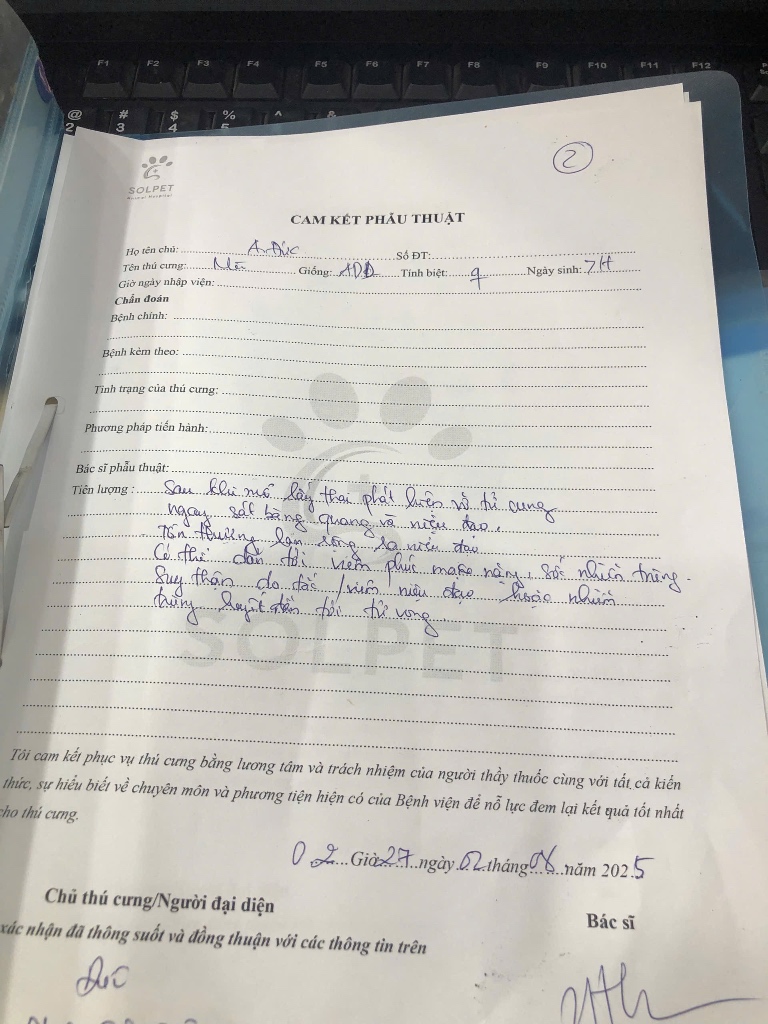 F1 F2 F3 F4 F5 F6 F7 F8 F9 F10 F11 F12
@ # $ % ^ &
2 3 4 5
2
SOLPET
Animal Hospital
CAM KẾT PHẪU THUẬT
Họ tên chủ: A. Đức Số ĐT:
Tên thú cưng: Giống: ADD Tính biệt: Ngày sinh: 7H
Giờ ngày nhập viện:
Chẩn đoán
Bệnh chính:
Bệnh kèm theo:
Tình trạng của thú cưng:
Phương pháp tiến hành:
Bác sĩ phẫu thuật:
Tiên lượng : Sau khi mổ lấy thai phát hiện vỡ tử cung
ngay sát bàng quang và niệu đạo.
Tổn thương lan rộng ra niệu đạo
Có thể dẫn tới viêm phúc mạc nặng, sốc nhiễm trùng.
Suy thận do tắc / viêm niệu đạo hoặc nhiễm
trùng huyết dẫn tới tử vong.
SOLPET
Tôi cam kết phục vụ thú cưng bằng lương tâm và trách nhiệm của người thầy thuốc cùng với tất cả kiến
thức, sự hiểu biết về chuyên môn và phương tiện hiện có của Bệnh viện để nỗ lực đem lại kết quả tốt nhất
cho thú cưng.
02 Giờ 27 ngày 02 tháng 08 năm 2025
Chủ thú cưng/Người đại diện
Bác sĩ
xác nhận đã thông suốt và đồng thuận với các thông tin trên
Đức